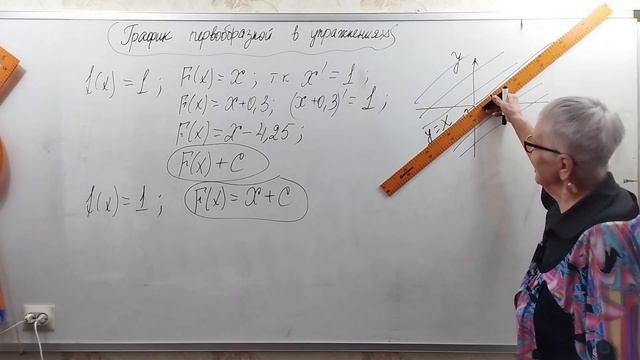 График первообразной в упражнениях
f(x) = 1 ; F(x) = x ; т.к x' = 1 ;
F(x) = x + 0,3 ; (x + 0,3)' = 1 ;
F(x) = x - 4,25 ;
F(x) + C
f(x) = 1 ; F(x) = x + C
y
y = x